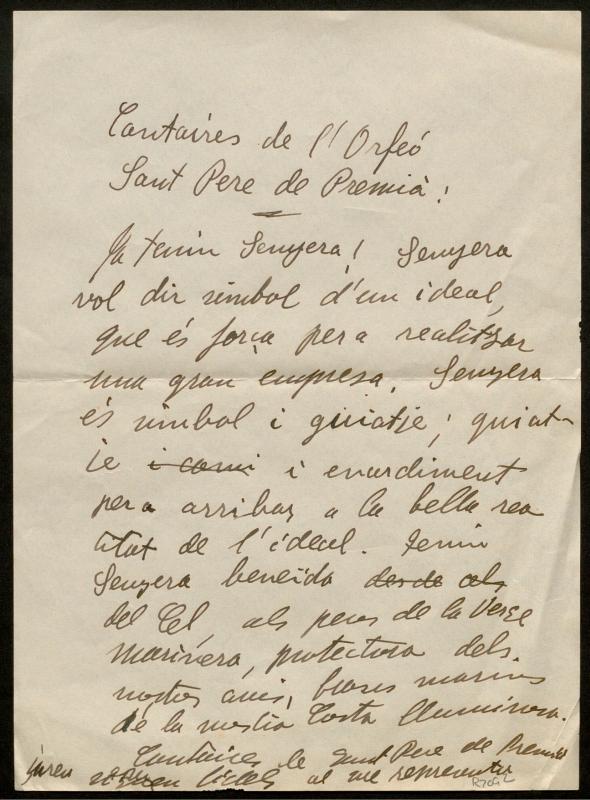 Cantaires de l'Orfeó
Sant Pere de Premià!
Ja tenim Senyera! Senyera
vol dir símbol d'un ideal,
que és força pera realitzar
una gran empresa. Senyera
és símbol i guiatje; guiat-
je i camí i enardiment
pera arribar a la bella rea
litat de l'ideal. Tenim
Senyera beneïda desde als
del Cel, als peus de la Verge
marinera, protectora dels
nostres avis, braus marins
de la nostra Costa lluminosa.
Cantaires de Sant Pere de Premià
fidels al que representa
R7062